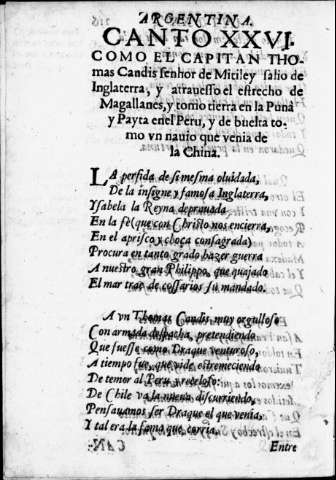 ARGENTINA.
CANTO XXVI.
COMO EL CAPITAN THO-
mas Candis ſenhor de Mitiley ſalio de
Inglaterra, y atraueſſo el eſtrecho de
Magallanes, y tomo tierra en la Puna
y Payta enel Peru, y de buelta to-
mo vn nauio que venia de
la China.
LA perfida de ſi meſma oluidada,
De la inſigne y famoſa Inglaterra,
Yſabela la Reyna deprauada
En la fè (que con Chriſto nos encierra,
En el apriſco y choça conſagrada)
Procura en tanto grado hazer guerra
A nueſtro gran Philippo, que quajado
El mar trae de coſſarios ſu mandado.
A vn Thomas Candis, muy orgulloſo
Con armada deſpacha, pretendiendo
Que fueſſe como Draque venturoſo,
A tiempo fue, que vide eſtremeciendo
De temor al Peru y receloſo:
De Chile va la nueua diſcurriendo,
Penſauamos ſer Draque el que venia,
Y tal era la fama que corria.
Entre